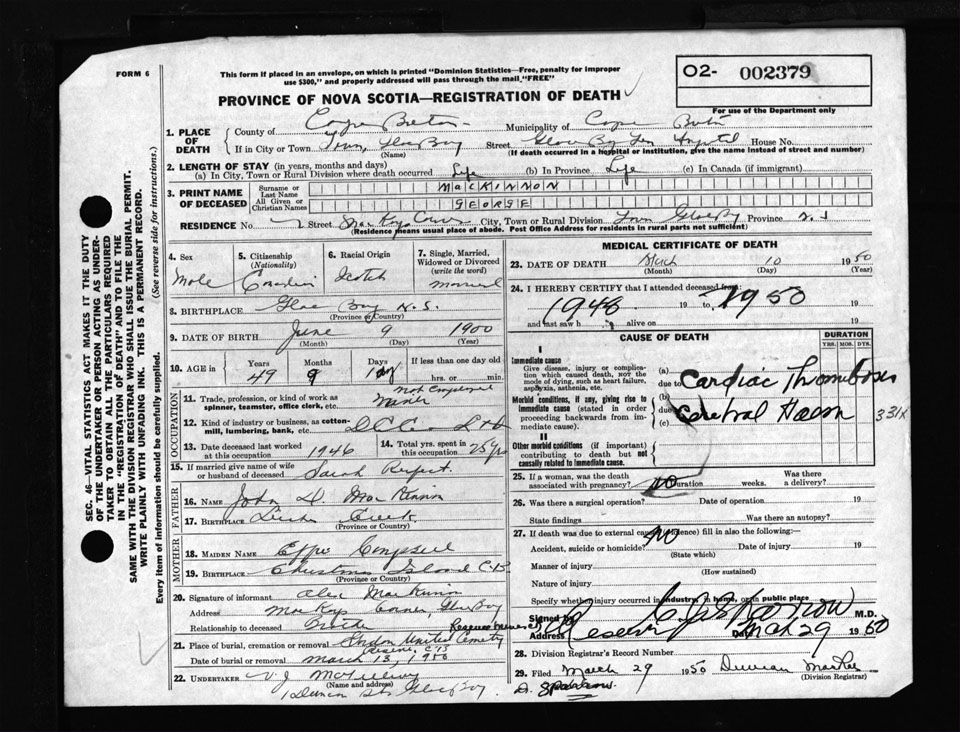 FORM 6
This form if placed in an envelope, on which is printed "Dominion Statistics—Free, penalty for improper
use $300," and properly addressed will pass through the mail "FREE"
O2- 002379
For use of the Department only
PROVINCE OF NOVA SCOTIA—REGISTRATION OF DEATH
1. PLACE OF DEATH
County of Cape Breton Municipality of Cape Breton
If in City or Town Town, Glace Bay Street Glace Bay Gen Hospital House No.
(Name) (If death occurred in a hospital or institution, give the name instead of street and number)
2. LENGTH OF STAY (in years, months and days)
(a) In City, Town or Rural Division where death occurred Life (b) In Province Life (c) In Canada (if immigrant)
3. PRINT NAME OF DECEASED
Surname or Last Name MacKINNON
All Given or Christian Names GEORGE
RESIDENCE No. Street MacKays Corner City, Town or Rural Division Town Glace Bay Province N.S
(Residence means usual place of abode. Post Office Address for residents in rural parts not sufficient)
4. Sex Male
5. Citizenship (Nationality) Canadian
6. Racial Origin Scotch
7. Single, Married, Widowed or Divorced (write the word) Married
8. BIRTHPLACE Glace Bay N.S.
(Province or Country)
9. DATE OF BIRTH June 9 1900
(Month) (Day) (Year)
10. AGE in Years 49 Months 9 Days 1 If less than one day old
hrs. or min.
OCCUPATION
11. Trade, profession, or kind of work as spinner, teamster, office clerk, etc. Miner
not employed
12. Kind of industry or business, as cotton-mill, lumbering, bank, etc. DCC Ltd
13. Date deceased last worked at this occupation 1946
14. Total yrs. spent in this occupation 25 yrs
15. If married give name of wife or husband of deceased Sarah
FATHER
16. NAME John MacKinnon
17. BIRTHPLACE Creek
(Province or Country)
MOTHER
18. MAIDEN NAME Effie Campbell
19. BIRTHPLACE Christmas Island C.B
(Province or Country)
20. Signature of informant Alex MacKinnon
Address MacKays Corner, Glace Bay
Relationship to deceased Brother
21. Place of burial, cremation or removal United Cemetry
Reserve C.B
Date of burial or removal March 13, 1950
22. UNDERTAKER V. J.
(Name and address)
Glace Bay
MEDICAL CERTIFICATE OF DEATH
23. DATE OF DEATH March 10 1950
(Month) (Day) (Year)
24. I HEREBY CERTIFY that I attended deceased from:
1946 19 to 1950 19
and last saw h alive on 19
CAUSE OF DEATH
DURATION
YRS. MOS. DYS.
I
Immediate cause
Give disease, injury or complication which caused death, not the mode of dying, such as heart failure, asphyxia, asthenia, etc.
(a) Cardiac Thrombosis
due to
Morbid conditions, if any, giving rise to immediate cause (stated in order proceeding backwards from immediate cause).
(b)
due Cerebral Haem 331X
(c)
II
Other morbid conditions (if important) contributing to death but not causally related to immediate cause.
25. If a woman, was the death associated with pregnancy? no Duration weeks. Was there a delivery?
26. Was there a surgical operation? Date of operation 19
State findings Was there an autopsy?
27. If death was due to external causes (violence) fill in also the following:— no
Accident, suicide or homicide? Date of injury 19
(State which)
Manner of injury
(How sustained)
Nature of injury
Specify whether injury occurred in industry, in home, or in public place
Signed by Sparrow M.D.
Address Reserve Date Mch 29 1950
28. Division Registrar's Record Number
29. Filed March 29 1950 Duncan MacRae
(Division Registrar)
D. Sparrow.
SEC. 46—VITAL STATISTICS ACT MAKES IT THE DUTY
OF THE UNDERTAKER OR PERSON ACTING AS UNDER-
TAKER TO OBTAIN ALL THE PARTICULARS REQUIRED
IN THE "REGISTRATION OF DEATH" AND TO FILE THE
SAME WITH THE DIVISION REGISTRAR WHO SHALL ISSUE THE BURIAL PERMIT.
WRITE PLAINLY WITH UNFADING INK. THIS IS A PERMANENT RECORD.
Every item of information should be carefully supplied. (See reverse side for instructions.)